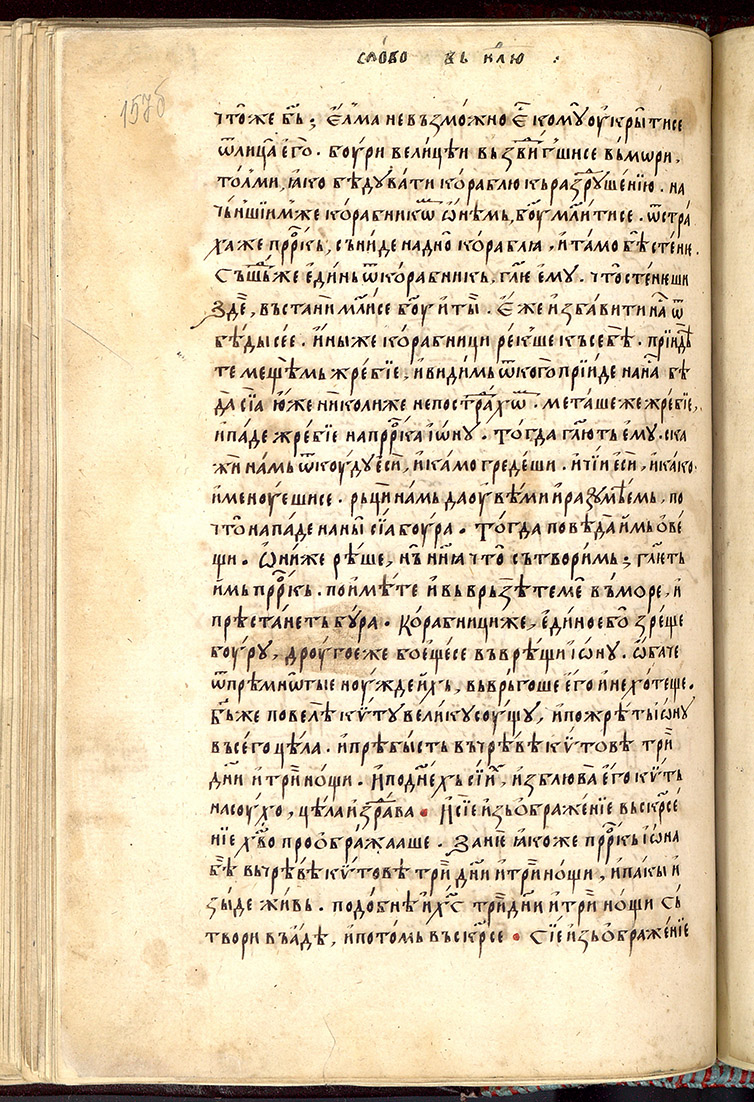 сло́во въ н҃лю :
157б
что́же бг҃ь; е҆́лма невъзмо́жно е҆́с кому҆ оу҆кры́тисе
ѿлица̀ е҆го̀. боу́ри вели́цѣи въздви́гшисе въмо́ри,
то́лми, ꙗ҆́ко бѣ́дꙋвати кораблю̀ къразрꙋше́нїю. на
че́ншїимже кора́бникѡм ѡ҆не́мь, бо́гꙋ мл҃и́тисе. ѿстра́
ха же прⷪ҇ркь, съни́де надно̀ корабла̀, и҆та́мо бѣ̀ стене.
Съшѣ́дже е҆ди́нь ѿкора́бникь, гл҃ѥ е҆мꙋ̀. что̀стене́ши
здѐ, въста́ни мл҃и́се бо́гꙋ и҆ты̀. е҆́же и҆зба́вити на́с ѿ
бѣды̀сее. и҆ны́же кора́бници реко́ше къ се́бѣ. прїидѣ́
те меще́мь жре́бїе, и҆ви́димь ѿкого̀ прїи́де на́на бѣ
да̀ сїа̀ ю҆́же нико́лиже непострада́хѡм. мета́шеже жре́бїе,
и҆па́де жре́бїе на прⷪ҇рка і҆ѡ́нꙋ. то́гда гл҃ю́ть е҆мꙋ̀. ска
жѝ на́мь ѿкоу́дꙋ е҆сѝ, и҆ка́мо греде́ши. и҆чїѝ е҆сѝ, и҆ка́ко
и҆менꙋе́шисе. рьцѝ на́мь да оу҆вѣ́ми и҆разꙋмѣ́емь, по
что̀ напа́де на ны̀ сїа̀ боу́ра. то́гда повѣ́да и҆́мь ѡ҆ ве
щи. ѡ҆ни́же рѣ́ше, нь̀ ни́нꙗ что̀ сътвори́мь; гл҃е́ть
и҆́мь прⷪ҇ркь. пои҆мѣ́те и҆въврь́зѣте мѐ въмо́ре, и҆
прѣста́неть бꙋ́ра. кора́бници же, е҆ди́ноебо̀ зре́ще
боу́рꙋ, дрꙋго́еже бое́щесе въврѣ́щи і҆ѡ́нꙋ. ѡ҆ба́че
ѿпрѣмно́гые ноу́жде и҆́хь, въврь́гоше е҆го̀ и҆не хоте́ще.
бг҃ьже повелѣ̀ ки́тꙋ вели́кꙋ соу́щꙋ, и҆пожрѣ́ть і҆ѡ́нꙋ
въсего̀ цѣ́ла. и҆прѣбы́сть въчрѣ́вѣ ки́товѣ трѝ
дн҃и и҆ трѝ но́щи. И҆по дн҃ѣхь си́хь, и҆зблюва̀ е҆го̀ ки́ть
на соу́хо, цѣ́ла и҆здра́ва. И҆сїѐ и҆зьѡбраже́нїе въскрⷭ҇е́
нїе хв҃о проѡбража́аше. Занѐ ꙗ҆́коже прⷪ҇ркь і҆ѡ́на
бѣ̀ въчрѣ́вѣ ки́товѣ трѝ дн҃и и҆трѝ но́щи, и҆па́кы и҆
зы́де жи́вь. подо́бнѣ и҆хⷭ҇ трѝ дн҃и и҆ трѝ но́щи сь
твори въ а҆́дѣ, и҆пото́мь въскрⷭ҇се. Сїѐ и҆зьѡбраже́нїе